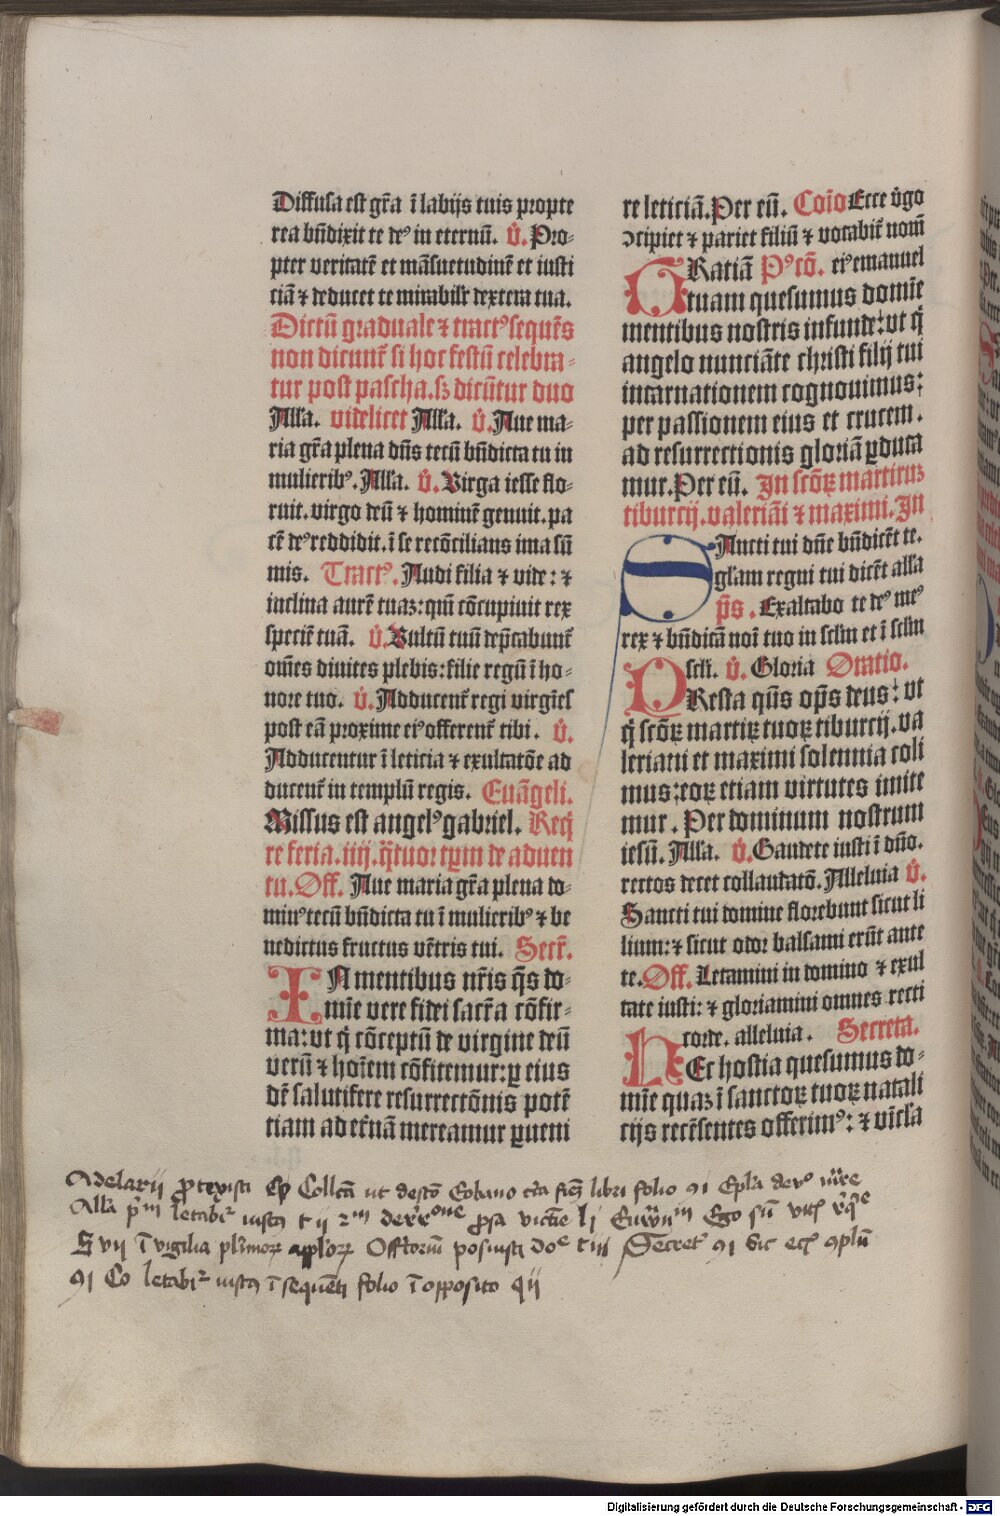 Diffusa est gr̄a ī labijs tuis propte
rea bn̄dixit te deꝰ in eternū. v̊. Pro-
pter veritatē et māsuetudinē et iusti
ciā ⁊ deducet te mirabilr̄ dextera tua.
Dictū graduale ⁊ tractꝰ sequēs
non dicunt̄ si hoc festū celebra-
tur post pascha. sꝫ dicūtur duo
Alla. videlicet Alla. v̊. Aue ma-
ria gr̄a plena dn̄s tecū bn̄dicta tu in
mulieribꝰ. Alla. v̊. Virga iesse flo-
ruit. virgo deū ⁊ hominē genuit. pa
cē deꝰ reddidit. ī se recōcilians ima sū
mis. Tractꝰ. Audi filia ⁊ vide: ⁊
inclina aurē tuaꝫ: qm̄ cōcupiuit rex
speciē tuā. v̊. Vultū tuū dep̄cabunt̄
om̄es diuites plebis: filie regū ī ho-
nore tuo. v̊. Adducent̄ regi virgīes
post eā proxime eiꝰ offerent̄ tibi. v̊.
Adducentur ī leticia ⁊ exultatōe ad
ducent̄ in templū regis. Euāgeli.
Missus est angelꝰ gabriel. Req̄
re feria. iiij. q̄tuor tp̄m de aduen
tu. Off. Aue maria gr̄a plena do-
minꝰ tecū bn̄dicta tu ī mulieribꝰ ⁊ be
nedictus fructus vētris tui. Secr̄.
IN mentibus nr̄is q̄s do-
mīe vere fidei sacr̄a cōfir-
ma: vt q̄ cōceptū de virgine deū
verū ⁊ hoīem cōfitemur: ꝑ eius
dē salutifere resurrectōnis potē
tiam ad et̄nā mereamur ꝑueni
re leticiā. Per eū. Coīo Ecce v̊go
ↄcipiet ⁊ pariet filiū ⁊ vocabit̄ nomē
GRatiā Pꝰcō. eiꝰ emanuel
tuam quesumus domīe
mentibus nostris infunde: vt q̄
angelo nunciāte christi filij tui
incarnationem cognouimus:
per passionem eius et crucem.
ad resurrectionis gloriā ꝑduca
mur. Per eū. In scōꝝ martiruꝫ
tiburcij. valeriāi ⁊ maximi. In
SAncti tui dn̄e bn̄dicēt te.
gl̄am regni tui dicēt alla
p̄s. Exaltabo te deꝰ meꝰ
rex ⁊ bn̄dicā noī tuo in sclm̄ et ī sclm̄
scli. v̊. Gloria Oratio.
PResta q̄s op̄s deus: vt
q̄ scōꝝ martiꝝ tuoꝝ tiburcij. va
leriani et maximi solennia coli
mus: eoꝝ etiam virtutes imite
mur. Per dominum nostrum
iesū. Alla. v̊. Gaudete iusti ī dn̄o.
rectos decet collaudatō. Alleluia v̊.
Sancti tui domine florebunt sicut li
lium: ⁊ sicut odor balsami erūt ante
te. Off. Letamini in domino ⁊ exul
tate iusti: ⁊ gloriamini omnes recti
corde. alleluia. Secreta.
HEc hostia quesumus do-
mīe quaꝫ ī sanctoꝝ tuoꝝ natali
cijs recēsentes offerimꝰ: ⁊ vīcla
Adelarii ꝓtexisti Collcā ut Eobano libri folio
Alla letabit̄ iustꝰ ꝓsa Ego sū
vii ī vigilia appl̄oꝝ Offtoriū posuisti Secret̄
Co letabit̄ iustꝰ ī sequēti folio ī opposito
Digitalisierung gefördert durch die Deutsche Forschungsgemeinschaft - DFG